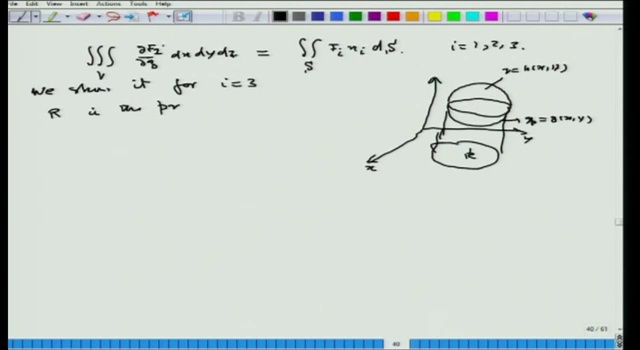 File Edit View Insert Actions Tools Help
∭_V ∂F_i/∂z dx dy dz = ∬_S F_i n_i dS. i = 1, 2, 3.
We show it for i = 3
R is the pr
z = h(x, y)
z = g(x, y)
y
x
R
40 / 61
40